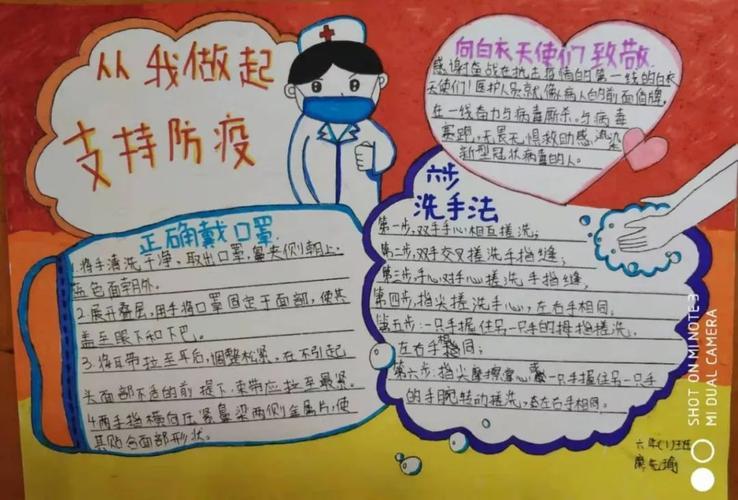 从我做起
支持防疫
向白衣天使们致敬
感谢奋战在抗击疫情的第一线的白衣
天使们!医护人员就像病人台的前面盾牌,
在一线奋力与病毒厮杀。与病毒
無畏无惧救助感染
新型冠状病毒的人。
正确戴口罩
1.将手清洗干净,取出口罩,鼻夹侧朝上.
蓝色面朝外.
2.展开叠层,用手将口罩固定于面部,使其
盖至眼下和下巴。
3.将耳带拉至耳后,调整松紧。在不引起
头面部不适的前提下,束带应拉至最紧。
4.两手指横向压紧鼻梁两侧金属片,使
其贴合面部形状。
六步
洗手法
第一步,双手手心相互搓洗;
第二步,双手交叉搓洗手指缝;
第三步:手心对手心搓洗手指缝,
第四步:指尖搓洗手心,左右手相同。
第五步:一只手握住另一只手的拇指搓洗,
左右手相同;
第六步:指尖摩擦掌心或一只手握住另一只手
的手腕转动搓洗,左右手相同。
六年(1)班
SHOT ON MI NOTE 3
MI DUAL CAMERA